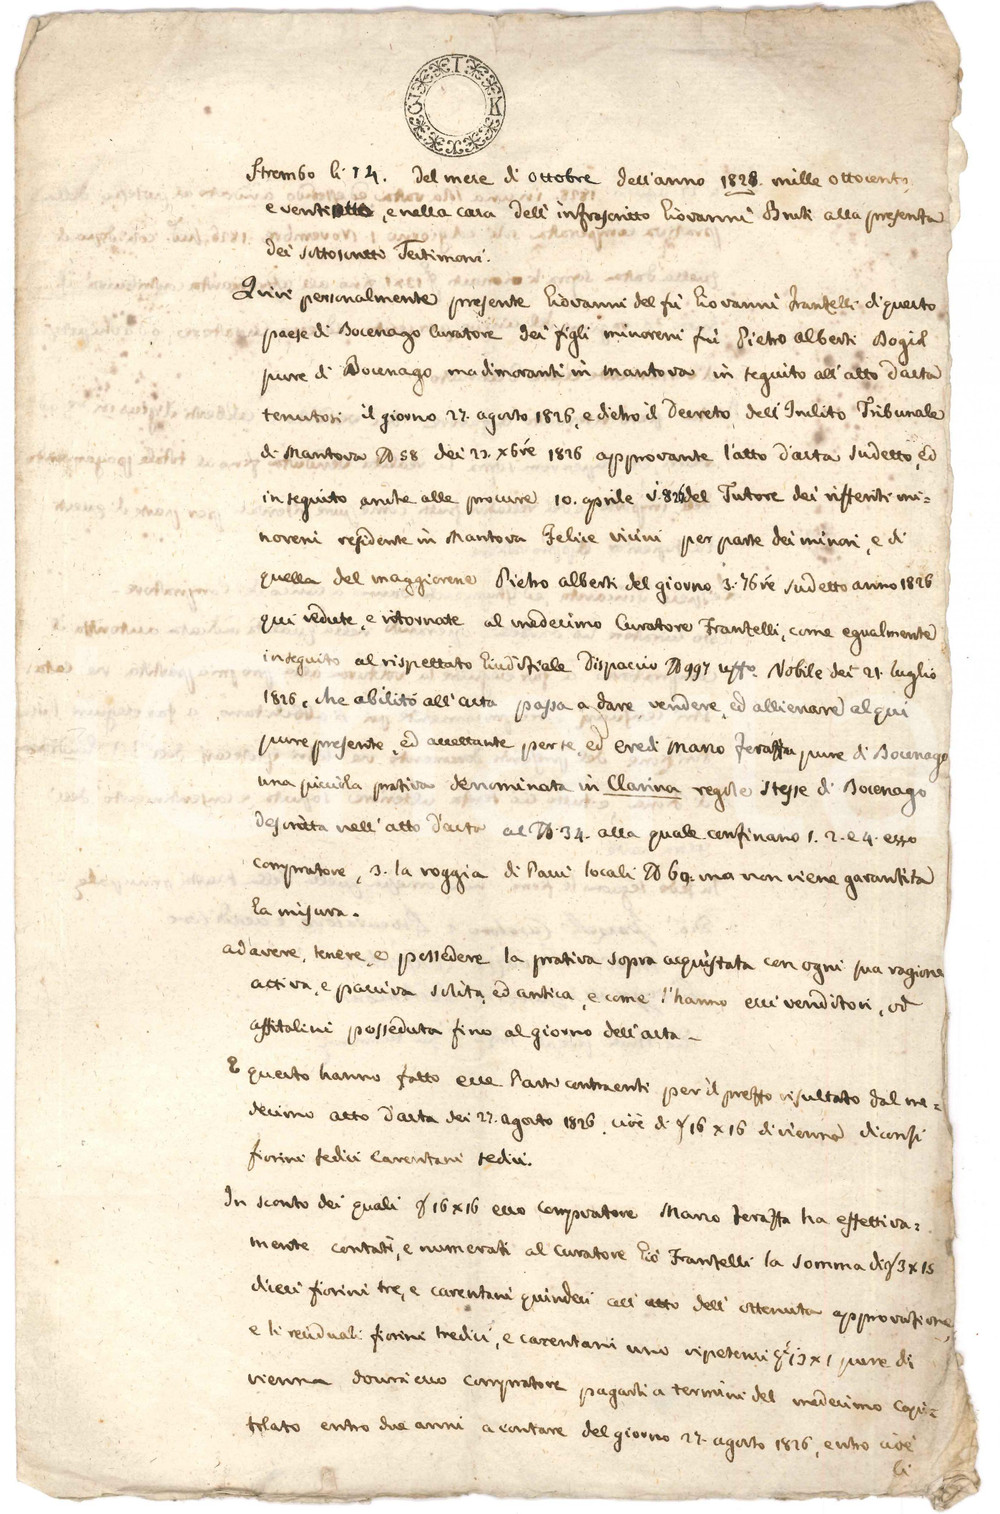 G I K
Strembo li 14. del mese di ottobre dell'anno 1828. mille ottocento,
e venti otto, e nella casa dell'infrascritto Giovanni Bruti alla presenza
dei sottoscritti Testimonj.
Quivi personalmente presente Giovanni del fù Giovanni Frantelli di questo
paese di Bocenago Curatore dei figli minoreni fù Pietro Alberti Bogiol
pure di Bocenago ma dimoranti in Mantova in seguito all'atto d'asta
tenutosi il giorno 27. agosto 1826, e dietro il Decreto dell'Inclito Tribunale
di Mantova N 58 dei 22. x6re 1826 approvante l'atto d'asta sudetto, ed
in seguito anche alle procure 10. aprile 1826 del Tutore dei rifferiti mi=
noreni residente in Mantova Felice Vicini per parte dei minori, e di
quella del maggiorene Pietro Alberti del giorno 3. 76re sudetto anno 1826
qui vedute, e ritornate al medecimo Curatore Frantelli, come egualmente
in seguito al rispettato Giudiziale Dispaccio N 997 uffo. Nobile dei 21. luglio
1826, che abilitó all'asta passa a dare, vendere, ed allienare al qui
pure presente, ed accettante per se, ed eredi Mario Ferazza pure di Bocenago
una piccola prativa denominata in Clarina regole stesse di Bocenago
descritta nell'atto d'asta al N 34. alla quale confinano 1. 2. e 4. esso
compratore, 3. la roggia di Passi locali N 69. ma non viene garantita
la misura.
ad avere, tenere, e possedere la prativa sopra acquistata con ogni sua ragione
activa, e passiva solita, ed antica, e come l'hanno essi venditori, od
affitalini posseduta fino al giorno dell'asta.
E questo hanno fatto esse Parti contraenti per il prezzo risultato dal me=
decimo atto d'asta dei 27. agosto 1826, cioè di f 16 x 16 di vienna diconsi
fiorini sedici Carentani sedici.
In sconto dei quali f 16 x 16 esso compratore Mario Ferazza ha effettiva=
mente contati, e numerati al curatore Gio Frantelli la somma di f 3 x 15
dicesi fiorini tre, e carentani quindeci all'atto dell'ottenuta approvazione,
e li residuali fiorini tredici, e carentani uno ripetensi f 13 x 1 pure di
vienna dovrà esso compratore pagarli a termini del medecimo capi=
tolato entro due anni a contare del giorno 27. agosto 1826, entro cioè
li